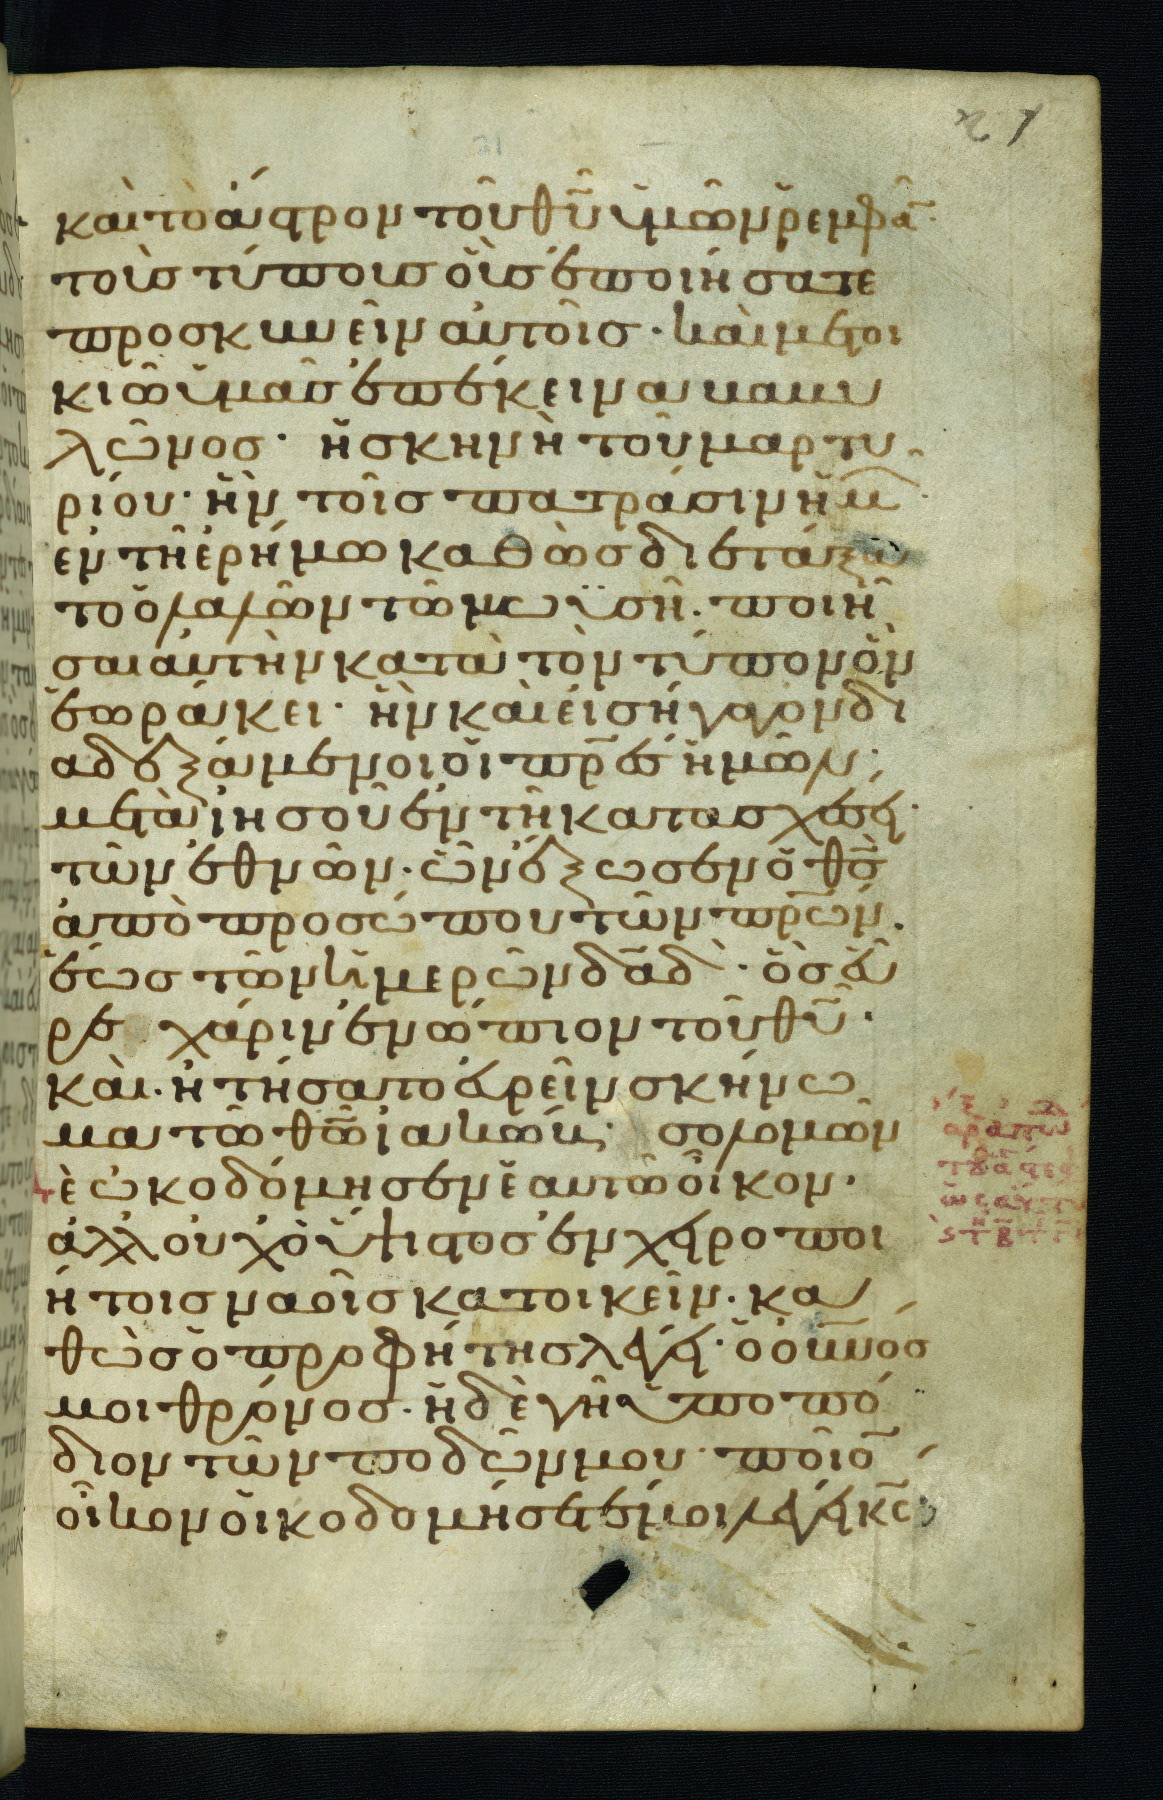 21
καὶ τὸ ἄστρον τοῦ θῦ ὑμῶν ῥεμφὰ̄·
τοὺς τύπους οὓς ἐποιήσατε
προσκυνεῖν αὐτοῖς· καὶ μετοι
κιῶ ὑμᾶς ἐπέκεινα βαβυ
λῶνος· ἡ σκηνὴ τοῦ μαρτυ
ρίου· ἦν τοῖς πατράσιν ἡμ
ἐν τῇ ἐρήμω καθὼς διετάξα
το ὁ λαλῶν τῶ μωϋσῆ· ποιῆ
σαι αὐτὴν κατὰ τὸν τύπον ὃν
ἑωράκει· ἣν καὶ εἰσήγαγον δι
αδεξάμενοι οἱ πρ̄ες ἡμῶν·
μετὰ ἰησοῦ ἐν τῆ κατασχέσει
τῶν ἐθνῶν· ὧν ἔξωσεν ὁ θς̄
ἀπὸ προσώπου τῶν πρ̄ων·
ἕως τῶν ἡμερῶν δᾱδ· ὃς εὗ
ρε χάριν ἐνώπιον τοῦ θῦ·
καὶ ἠτήσατο εὑρεῖν σκήνω
μα τῶ θῶ ἰακώβ· σολομῶν
δὲ ὠκοδόμησεν αὐτῶ οἶκον·
ἀλλ' οὐχ ὁ ὕψιστος ἐν χειροποι
ήτοις ναοῖς κατοικεῖν· κα
θὼς ὁ προφήτης λέγει· ὁ οὐνός
μοι θρόνος· ἡ δὲ γῆ ὑποπό
διον τῶν ποδῶν μου· ποῖον
οἶκον οἰκοδομήσετέ μοι λέγει κς̄